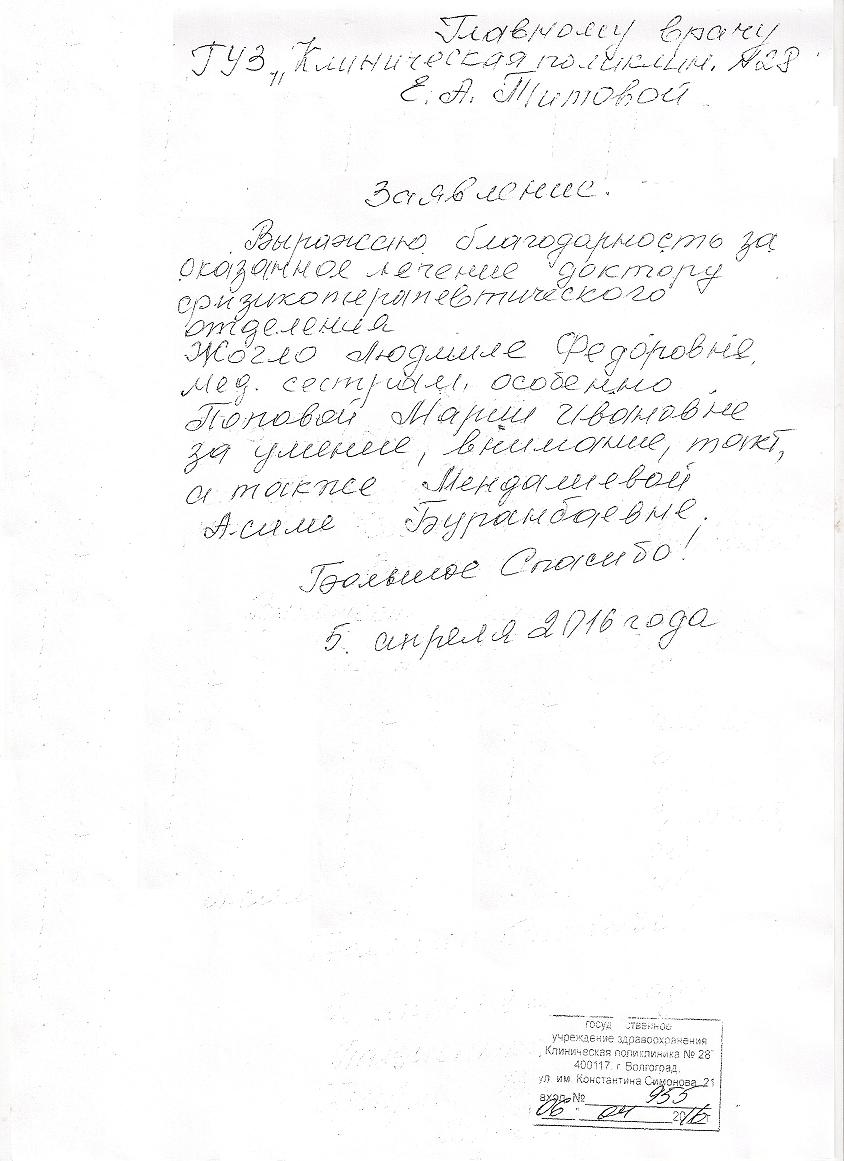 Главному врачу
ГУЗ „Клиническая поликлин. №28
Е. А. Титовой
Заявление.
Выражаю благодарность за
оказанное лечение доктору
физикотерапевтического
отделения
Жогло Людмиле Федоровне,
мед. сестрам, особенно
Поповой Марии Ивановне
за умение, внимание, такт,
а также Мендалиевой
Асиме Буранбаевне.
Большое Спасибо!
5. апреля 2016 года
госуд ственное
учреждение здравоохранения
„Клиническая поликлиника № 28"
400117, г. Волгоград,
ул. им. Константина Симонова, 21
вход. № 955
06 04 2016